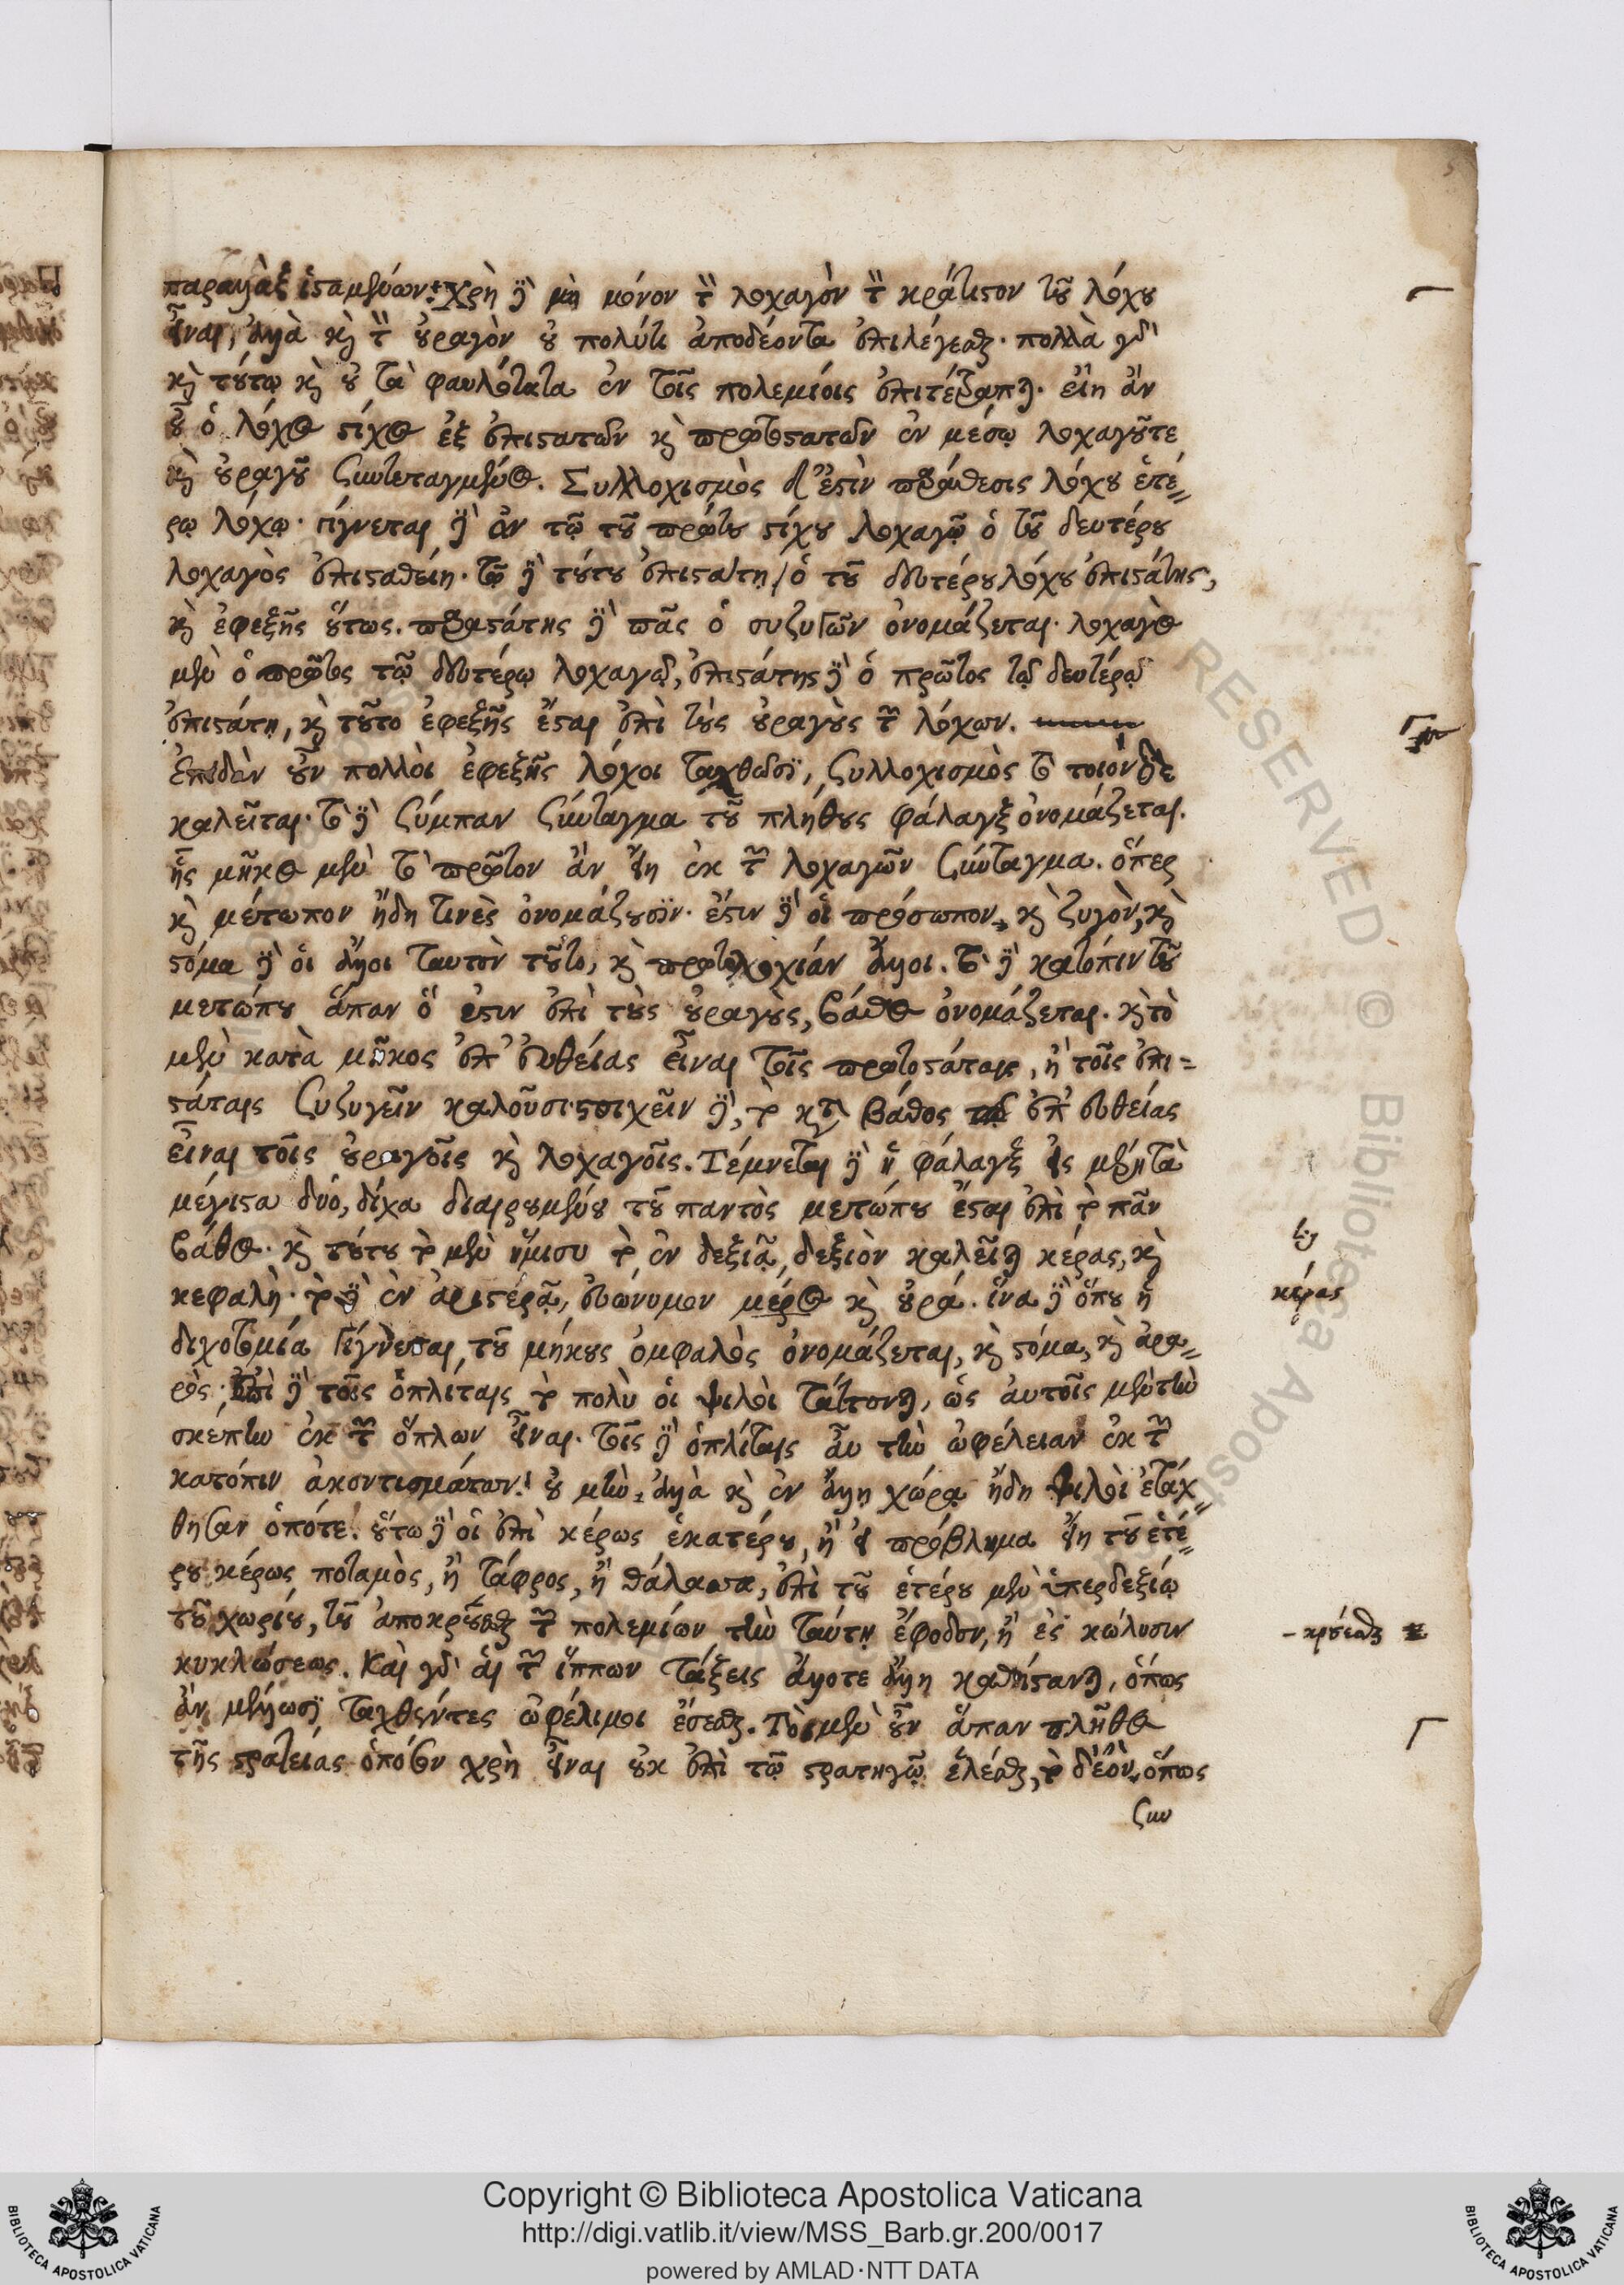 παραλλὰξ ἱσταμένων. χρὴ δὲ μὴ μόνον τὸν λοχαγὸν τὸν κράτιστον τοῦ λόχου
εἶναι, ἀλλὰ καὶ τὸν οὐραγὸν οὐ πολύ τι ἀποδέοντα ἐπιλέγεσθαι. πολλὰ γὰρ
καὶ τούτῳ καὶ οὐ τὰ φαυλότατα ἐν τοῖς πολεμίοις ἐπιτέτραπται. εἴη ἂν
οὖν ὁ λόχος στίχος ἐξ ἐπιστατῶν καὶ πρωτοστατῶν ἐν μέσῳ λοχαγοῦ τε
καὶ οὐραγοῦ συντεταγμένος. Συλλοχισμὸς δ' ἐστὶν πρόσθεσις λόχου ἑτέ=
ρῳ λόχῳ. γίγνεται δὲ ἂν τῷ τοῦ πρώτου στίχου λοχαγῷ ὁ τοῦ δευτέρου
λοχαγὸς ἐπισταθείη. τῷ δὲ τούτου ἐπιστάτῃ, ὁ τοῦ δευτέρου λόχου ἐπιστάτης,
καὶ ἐφεξῆς οὕτως. παραστάτης δὲ πᾶς ὁ συζυγῶν ὀνομάζεται. λοχαγὸς
μὲν ὁ πρῶτος τῷ δευτέρῳ λοχαγῷ, ἐπιστάτης δὲ ὁ πρῶτος τῷ δευτέρῳ
ἐπιστάτῃ, καὶ τοῦτο ἐφεξῆς ἔσται ἐπὶ τοὺς οὐραγοὺς τῶν λόχων.
ἐπειδὰν οὖν πολλοὶ ἐφεξῆς λόχοι ταχθῶσι, συλλοχισμὸς τὸ τοιόνδε
καλεῖται. τὸ δὲ σύμπαν σύνταγμα τοῦ πλήθους φάλαγξ ὀνομάζεται.
ἧς μῆκος μὲν τὸ πρῶτον ἂν εἴη ἐκ τῶν λοχαγῶν σύνταγμα. ὅπερ
καὶ μέτωπον ἤδη τινὲς ὀνομάζουσιν. ἔστιν δὲ οἳ πρόσωπον, καὶ ζυγὸν, καὶ
στόμα δὲ οἱ ἄλλοι ταυτὸν τοῦτο, καὶ πρωτολοχίαν ἄλλοι. τὸ δὲ κατόπιν τοῦ
μετώπου ἅπαν ὅ ἐστιν ἐπὶ τοὺς οὐραγοὺς, βάθος ὀνομάζεται. καὶ τὸ
μὲν κατὰ μῆκος ἐπ' εὐθείας εἶναι τοῖς πρωτοστάταις, ἢ τοῖς ἐπι=
στάταις συζυγεῖν καλοῦσι. στοιχεῖν δὲ, τὸ κατὰ βάθος ἐπ' εὐθείας
εἶναι τοῖς οὐραγοῖς καὶ λοχαγοῖς. Τέμνεται δὲ ἡ φάλαγξ εἰς μέρη τὰ
μέγιστα δύο, δίχα διαιρουμένου τοῦ παντὸς μετώπου ἔσται ἐπὶ τὸ πᾶν
βάθος. καὶ τούτου τὸ μὲν ἥμισυ τὸ ἐν δεξιᾷ, δεξιὸν καλεῖται κέρας, καὶ
κεφαλὴ. τὸ δὲ ἐν ἀριστερᾷ, εὐώνυμον μέρος καὶ οὐρά. ἵνα δὲ ὅπου ἡ
διχοτομία γίγνεται, τοῦ μήκους ὀμφαλὸς ὀνομάζεται, καὶ στόμα, καὶ ἀρα=
ρός. ἐπὶ δὲ τοῖς ὁπλίταις τὸ πολὺ οἱ ψιλοὶ τάττονται, ὡς αὐτοῖς μὲν τὴν
σκέπην ἐκ τῶν ὅπλων εἶναι. τοῖς δὲ ὁπλίταις αὖ τὴν ὠφέλειαν ἐκ τῶν
κατόπιν ἀκοντισμάτων. οὐ μὴν, ἀλλὰ καὶ ἐν ἄλλῃ χώρᾳ ἤδη ψιλοὶ ἐτάχ=
θησαν ὁπότε. οὕτω δὲ οἱ ἐπὶ κέρως ἑκατέρου, ἢ εἰ πρόβλημα εἴη τοῦ ἑτέ=
ρου κέρως ποταμὸς, ἢ τάφρος, ἢ θάλασσα, ἐπὶ τοῦ ἑτέρου μὲν ὑπερδεξίῳ
τοῦ χωρίου, τοῦ ἀποκρούεσθαι τῶν πολεμίων τὴν ταύτῃ ἔφοδον, ἢ ἐς κώλυσιν
κυκλώσεως. Καὶ γὰρ αἱ τῶν ἵππων τάξεις ἄλλοτε ἄλλῃ καθίστανται, ὅπως
ἂν μέλλωσι ταχθέντες ὠφέλιμοι ἔσεσθαι. Τὸ μὲν οὖν ἅπαν πλῆθος
τῆς στρατείας ὁπόσον χρὴ εἶναι οὐκ ἐπὶ τῷ στρατηγῷ ἑλέσθαι, τὸ δέον, ὅπως
συν
κέρας
-κρούεσθαι